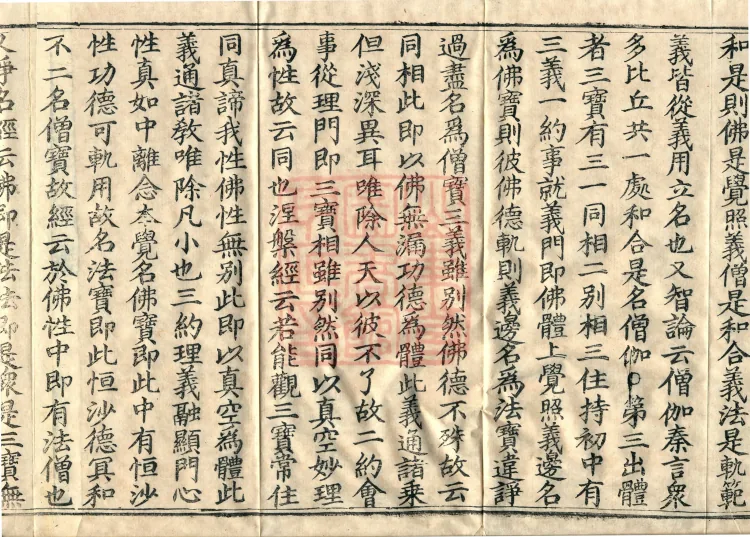 和是則佛是覺照義僧是和合義法是軌範
義皆從義用立名也又智論云僧伽秦言衆
多比丘共一處和合是名僧伽○第三出體
者三寶有三一同相二別相三住持初中有
三義一約事就義門即佛體上覺照義邊名
爲佛寶則彼佛德軌則義邊名爲法寶違諍
過盡名爲僧寶三義雖別然佛德不殊故云
同相此即以佛無漏功德爲體此義通諸乘
但淺深異耳唯除人天以彼不了故二約會
事從理門即三寶相雖別然同以真空妙理
爲性故云同也涅槃經云若能觀三寶常住
同真諦我性佛性無別此即以真空爲體此
義通諸教唯除凡小也三約理義融顯門心
性真如中離念夲覺名佛寶即此中有恒沙
性功德可軌用故名法寶即此恒沙德冥和
不二名僧寶故經云於佛性中即有法僧也
又淨名經云佛即是法法即是衆是三寶無